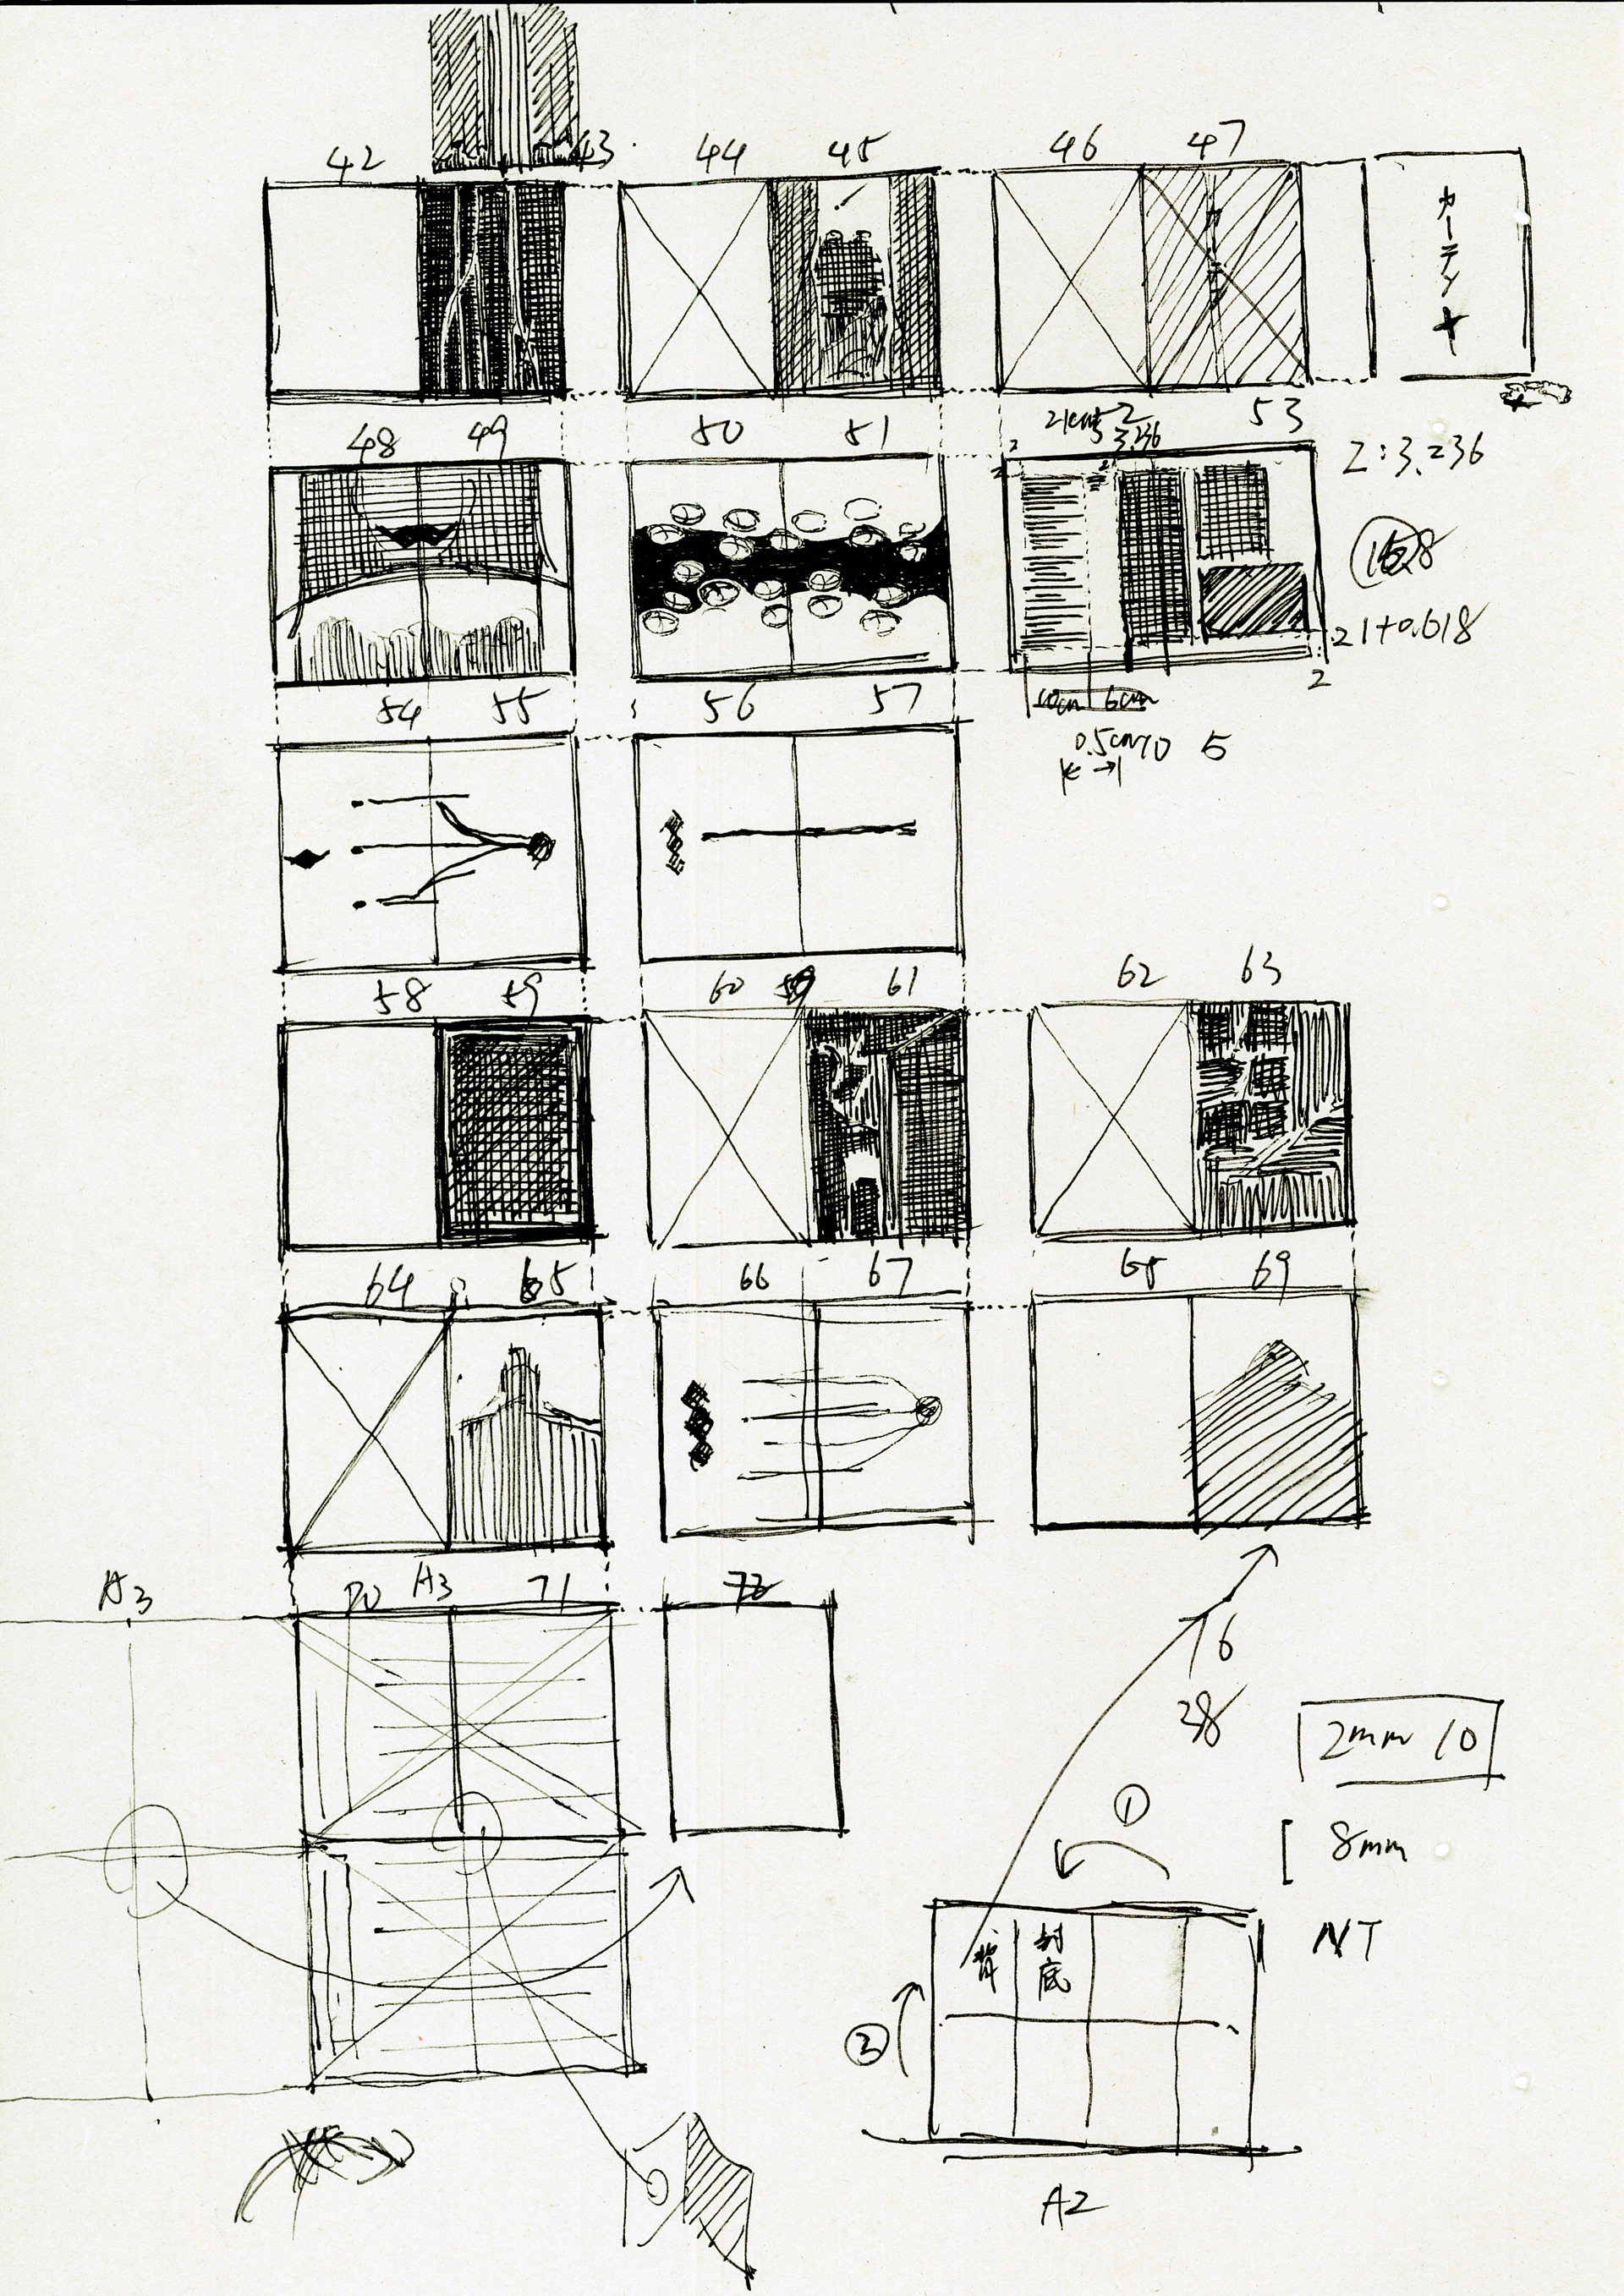 42 43 44 45 46 47
カーテン
48 49 50 51 52 53
21cm
3.236
2:3.236
2
2
1+0.618
2
10cm 6cm
0.5cm 10 5
54 55 56 57
58 59 60 61 62 63
64 65 66 67 68 69
A3 70 A3 71 72
16
38
2mm 10
①
8mm
背 封底
NT
②
A2